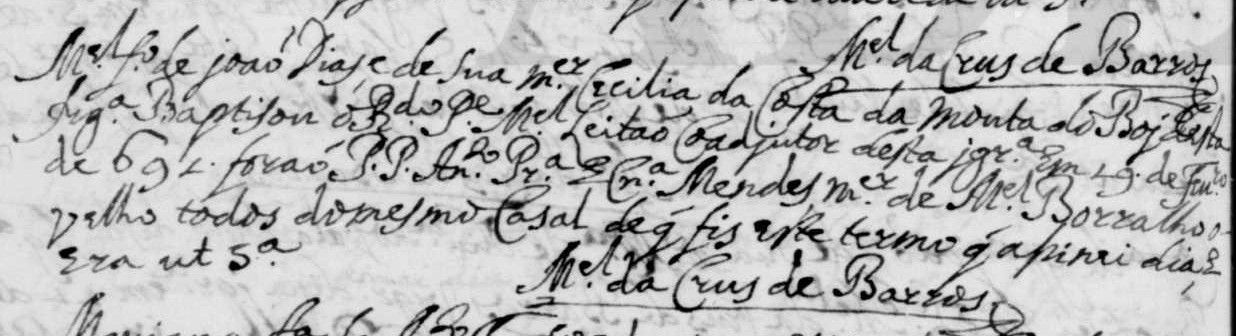 M.el da Crus de Barros
M.el f.o de joaõ Dias, e de sua m.er Cecilia da Costa da monta do Boj desta
frg.a Baptisou o R.do P.e M.el Leitaõ Coadjutor desta jgr.a Em 19. de Feu.ro
de 691. foraõ P.P. An.to Pr.a E Cn.a Mendes m.er de M.el Borralho o
velho todos do mesmo Casal de q̃ fis este termo q̃ asinei dia, E
Era ut s.a
M.el da Crus de Barros